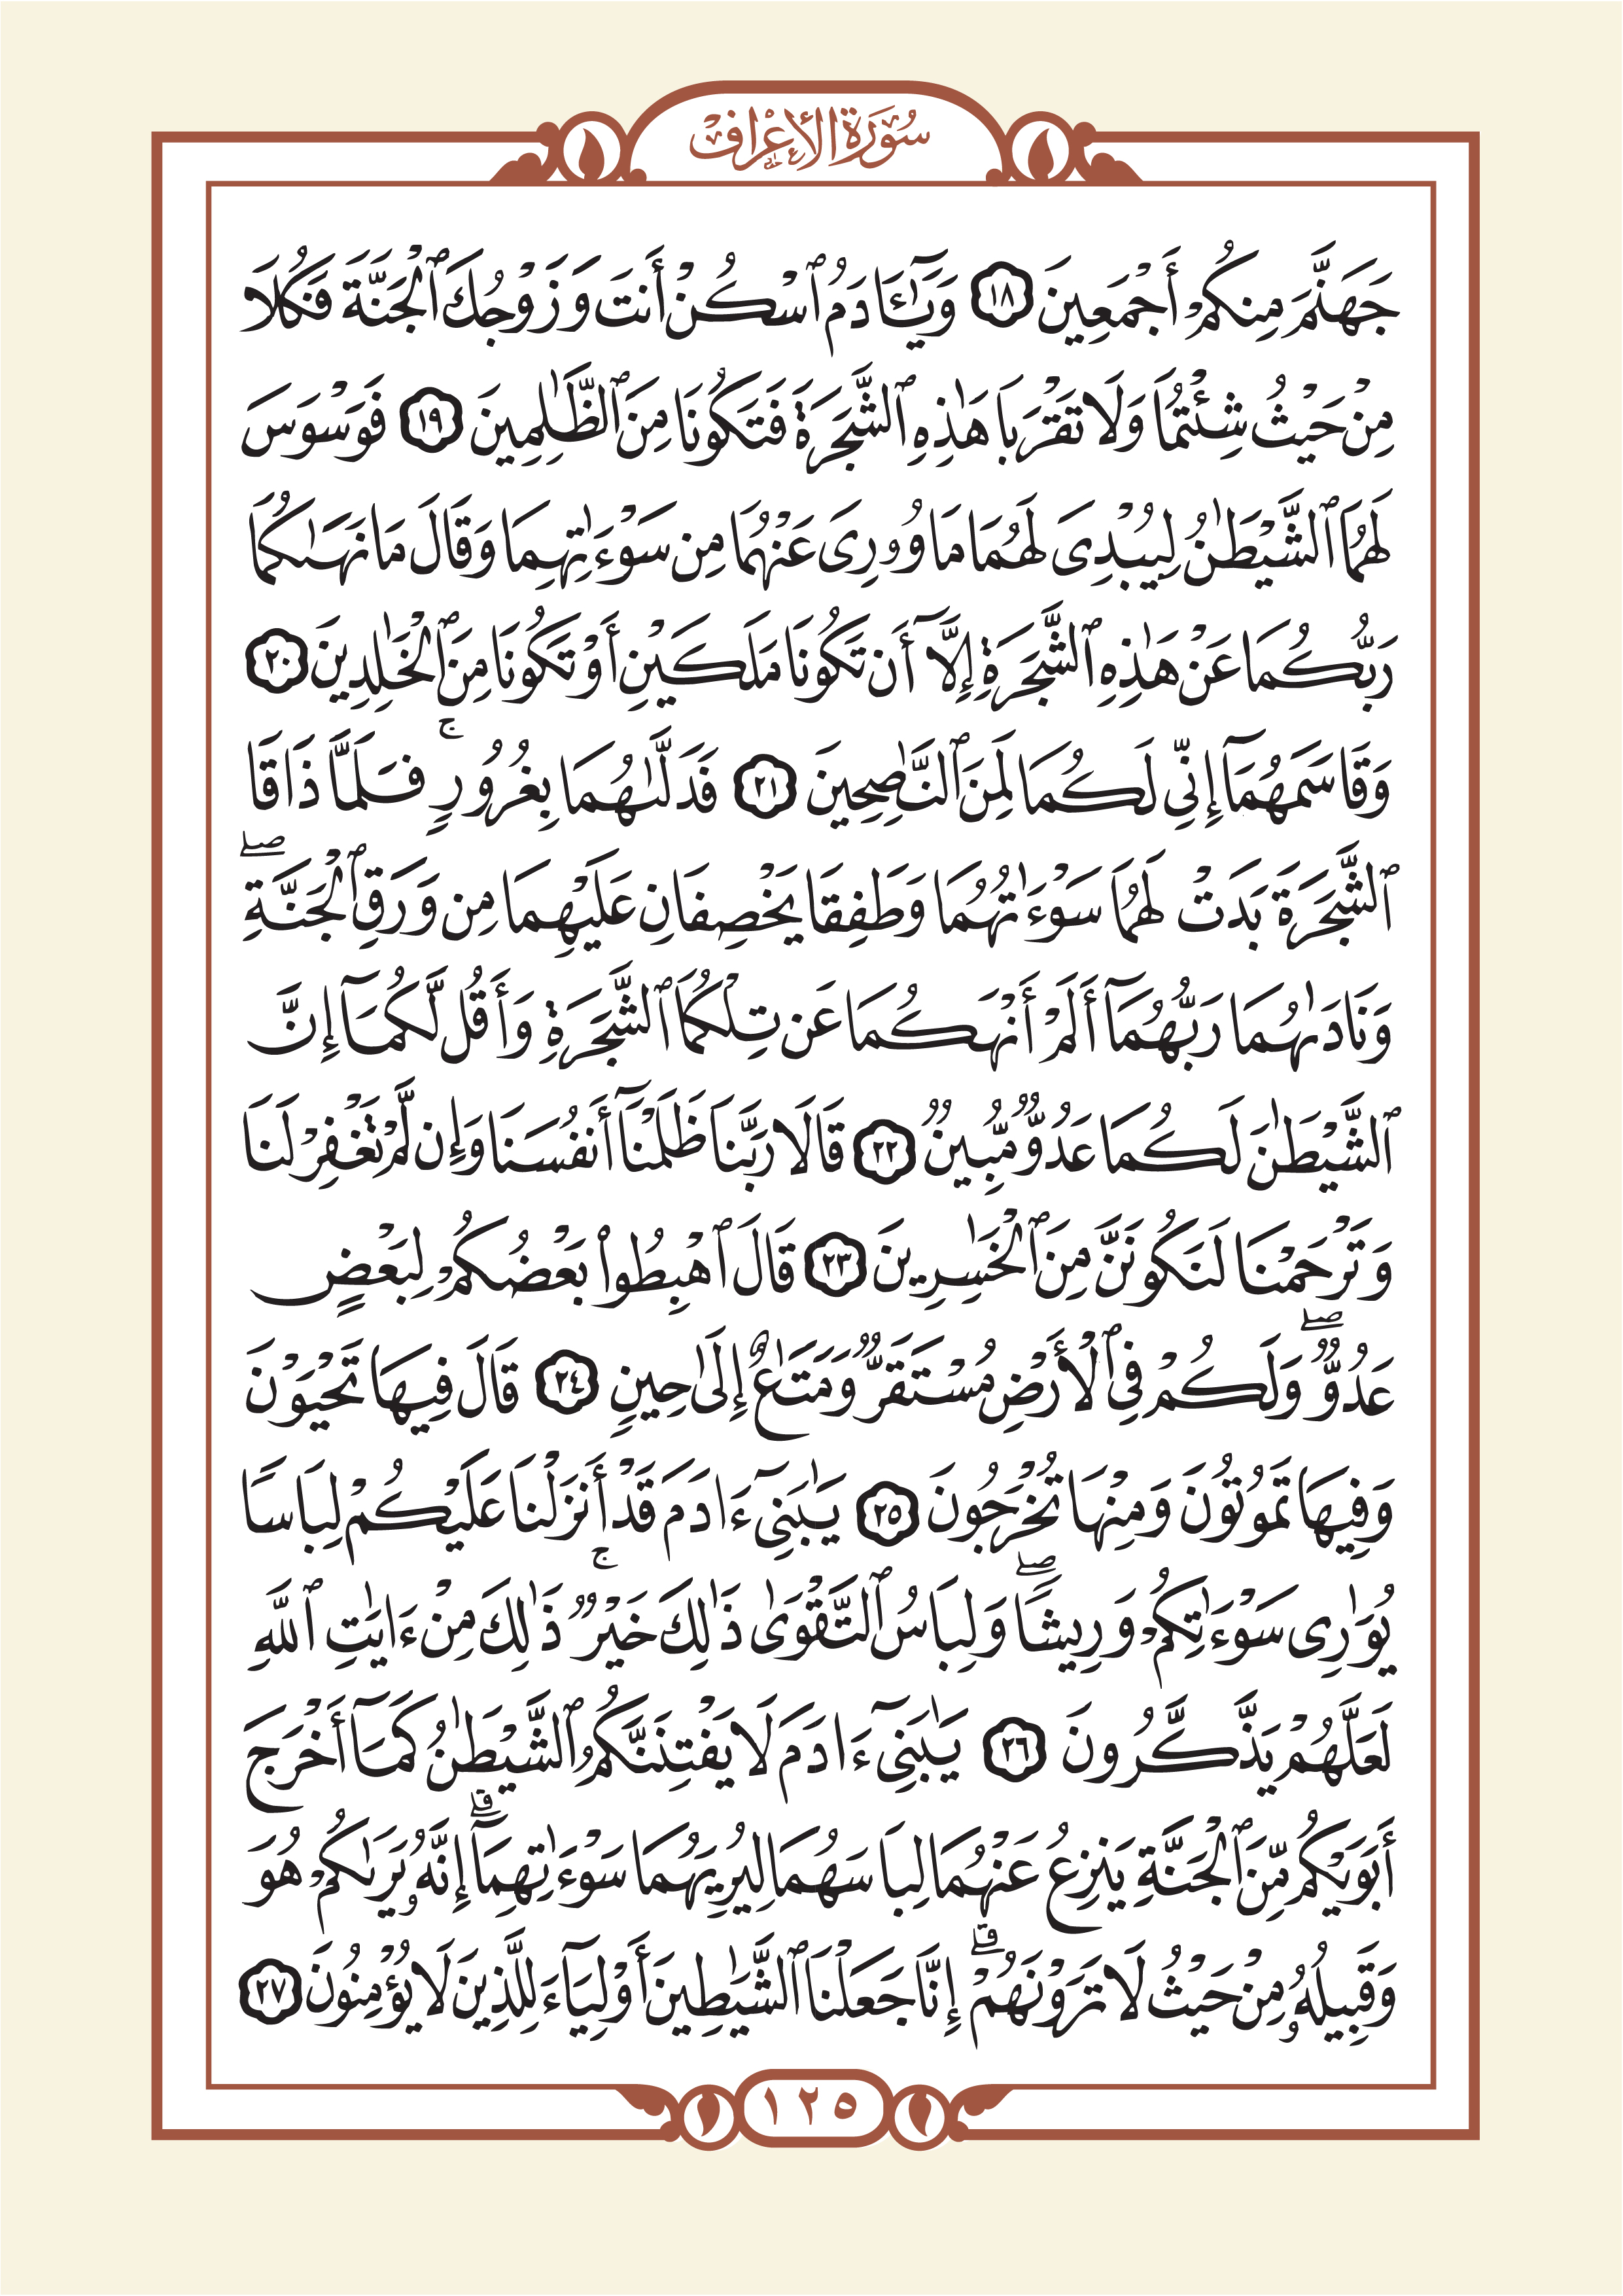 سُورَةُ الأَعْرَافِ
جَهَنَّمَ مِنكُمْ أَجْمَعِينَ ١٨ وَيَٰٓـَٔادَمُ ٱسْكُنْ أَنتَ وَزَوْجُكَ ٱلْجَنَّةَ فَكُلَا
مِنْ حَيْثُ شِئْتُمَا وَلَا تَقْرَبَا هَٰذِهِ ٱلشَّجَرَةَ فَتَكُونَا مِنَ ٱلظَّٰلِمِينَ ١٩ فَوَسْوَسَ
لَهُمَا ٱلشَّيْطَٰنُ لِيُبْدِىَ لَهُمَا مَا وُۥرِىَ عَنْهُمَا مِن سَوْءَٰتِهِمَا وَقَالَ مَا نَهَىٰكُمَا
رَبُّكُمَا عَنْ هَٰذِهِ ٱلشَّجَرَةِ إِلَّآ أَن تَكُونَا مَلَكَيْنِ أَوْ تَكُونَا مِنَ ٱلْخَٰلِدِينَ ٢٠
وَقَاسَمَهُمَآ إِنِّى لَكُمَا لَمِنَ ٱلنَّٰصِحِينَ ٢١ فَدَلَّىٰهُمَا بِغُرُورٍ ۚ فَلَمَّا ذَاقَا
ٱلشَّجَرَةَ بَدَتْ لَهُمَا سَوْءَٰتُهُمَا وَطَفِقَا يَخْصِفَانِ عَلَيْهِمَا مِن وَرَقِ ٱلْجَنَّةِ ۖ
وَنَادَىٰهُمَا رَبُّهُمَآ أَلَمْ أَنْهَكُمَا عَن تِلْكُمَا ٱلشَّجَرَةِ وَأَقُل لَّكُمَآ إِنَّ
ٱلشَّيْطَٰنَ لَكُمَا عَدُوٌّ مُّبِينٌ ٢٢ قَالَا رَبَّنَا ظَلَمْنَآ أَنفُسَنَا وَإِن لَّمْ تَغْفِرْ لَنَا
وَتَرْحَمْنَا لَنَكُونَنَّ مِنَ ٱلْخَٰسِرِينَ ٢٣ قَالَ ٱهْبِطُوا۟ بَعْضُكُمْ لِبَعْضٍ
عَدُوٌّ ۖ وَلَكُمْ فِى ٱلْأَرْضِ مُسْتَقَرٌّ وَمَتَٰعٌ إِلَىٰ حِينٍ ٢٤ قَالَ فِيهَا تَحْيَوْنَ
وَفِيهَا تَمُوتُونَ وَمِنْهَا تُخْرَجُونَ ٢٥ يَٰبَنِىٓ ءَادَمَ قَدْ أَنزَلْنَا عَلَيْكُمْ لِبَاسًا
يُوَٰرِى سَوْءَٰتِكُمْ وَرِيشًا ۖ وَلِبَاسُ ٱلتَّقْوَىٰ ذَٰلِكَ خَيْرٌ ۚ ذَٰلِكَ مِنْ ءَايَٰتِ ٱللَّهِ
لَعَلَّهُمْ يَذَّكَّرُونَ ٢٦ يَٰبَنِىٓ ءَادَمَ لَا يَفْتِنَنَّكُمُ ٱلشَّيْطَٰنُ كَمَآ أَخْرَجَ
أَبَوَيْكُم مِّنَ ٱلْجَنَّةِ يَنزِعُ عَنْهُمَا لِبَاسَهُمَا لِيُرِيَهُمَا سَوْءَٰتِهِمَآ ۗ إِنَّهُۥ يَرَىٰكُمْ هُوَ
وَقَبِيلُهُۥ مِنْ حَيْثُ لَا تَرَوْنَهُمْ ۗ إِنَّا جَعَلْنَا ٱلشَّيَٰطِينَ أَوْلِيَآءَ لِلَّذِينَ لَا يُؤْمِنُونَ ٢٧
١٢٥